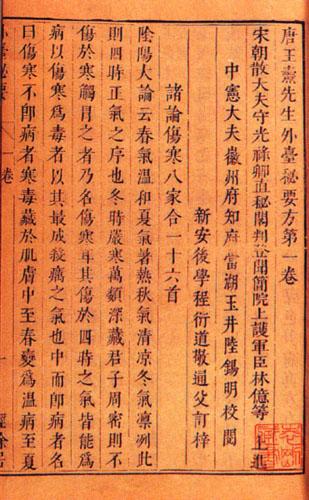 唐王燾先生外臺秘要方第一卷
宋朝散大夫守光祿卿直秘閣判登聞簡院上護軍臣林億等 上進
中憲大夫徽州府知府當湖玉井陸錫明校閱
新安後學程衍道敬通父訂梓
諸論傷寒八家合一十六首
陰陽大論云春氣溫和夏氣暑熱秋氣清涼冬氣凛冽此
則四時正氣之序也冬時嚴寒萬類深藏君子周密則不
傷於寒觸冒之者乃名傷寒耳其傷於四時之氣皆能爲
病以傷寒爲毒者以其最成殺癘之氣也中而卽病者名
曰傷寒不卽病者寒毒藏於肌膚中至春變爲溫病至夏
卷一